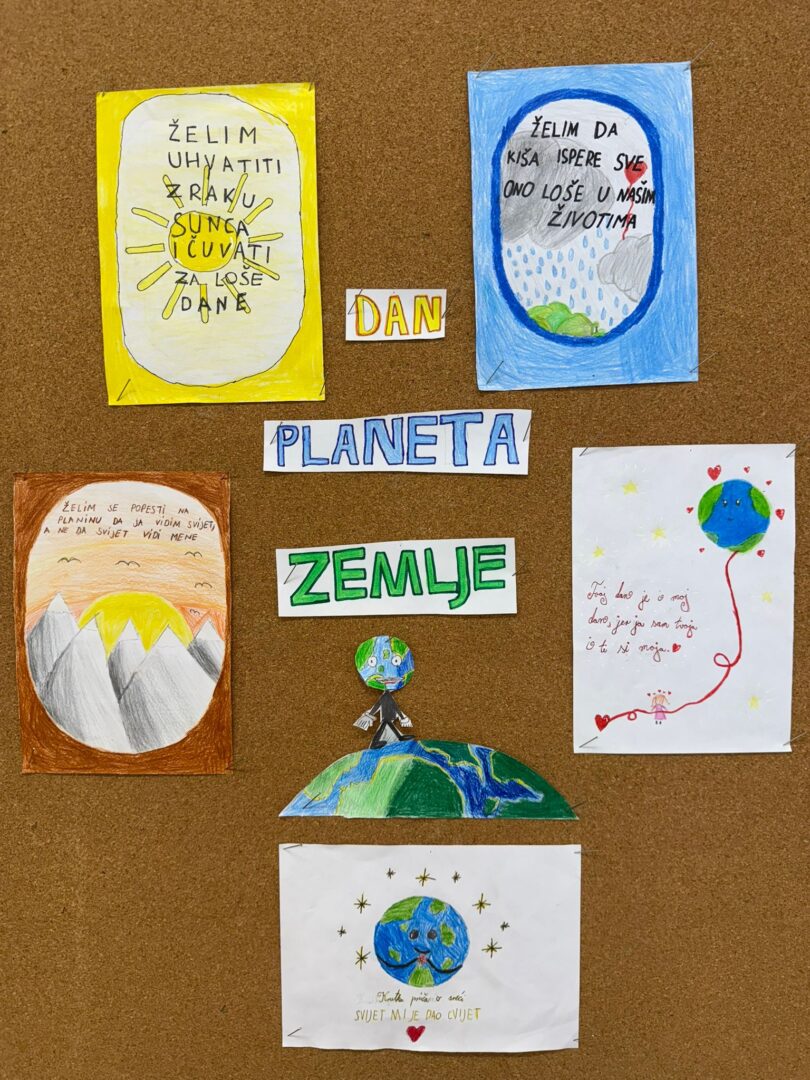 ŽELIM
UHVATITI
ZRAKU
SUNCA
I ČUVATI
ZA LOŠE
DANE
ŽELIM DA
KIŠA ISPERE SVE
ONO LOŠE U NAŠIM
ŽIVOTIMA
DAN
PLANETA
ZEMLJE
ŽELIM SE POPESTI NA
PLANINU DA JA VIDIM SVIJET,
A NE DA SVIJET VIDI MENE
Tvoj dan je i moj
dan, jer ja sam tvoja
i ti si moja.
Kratka priča o sreći
SVIJET MI JE DAO CVIJET